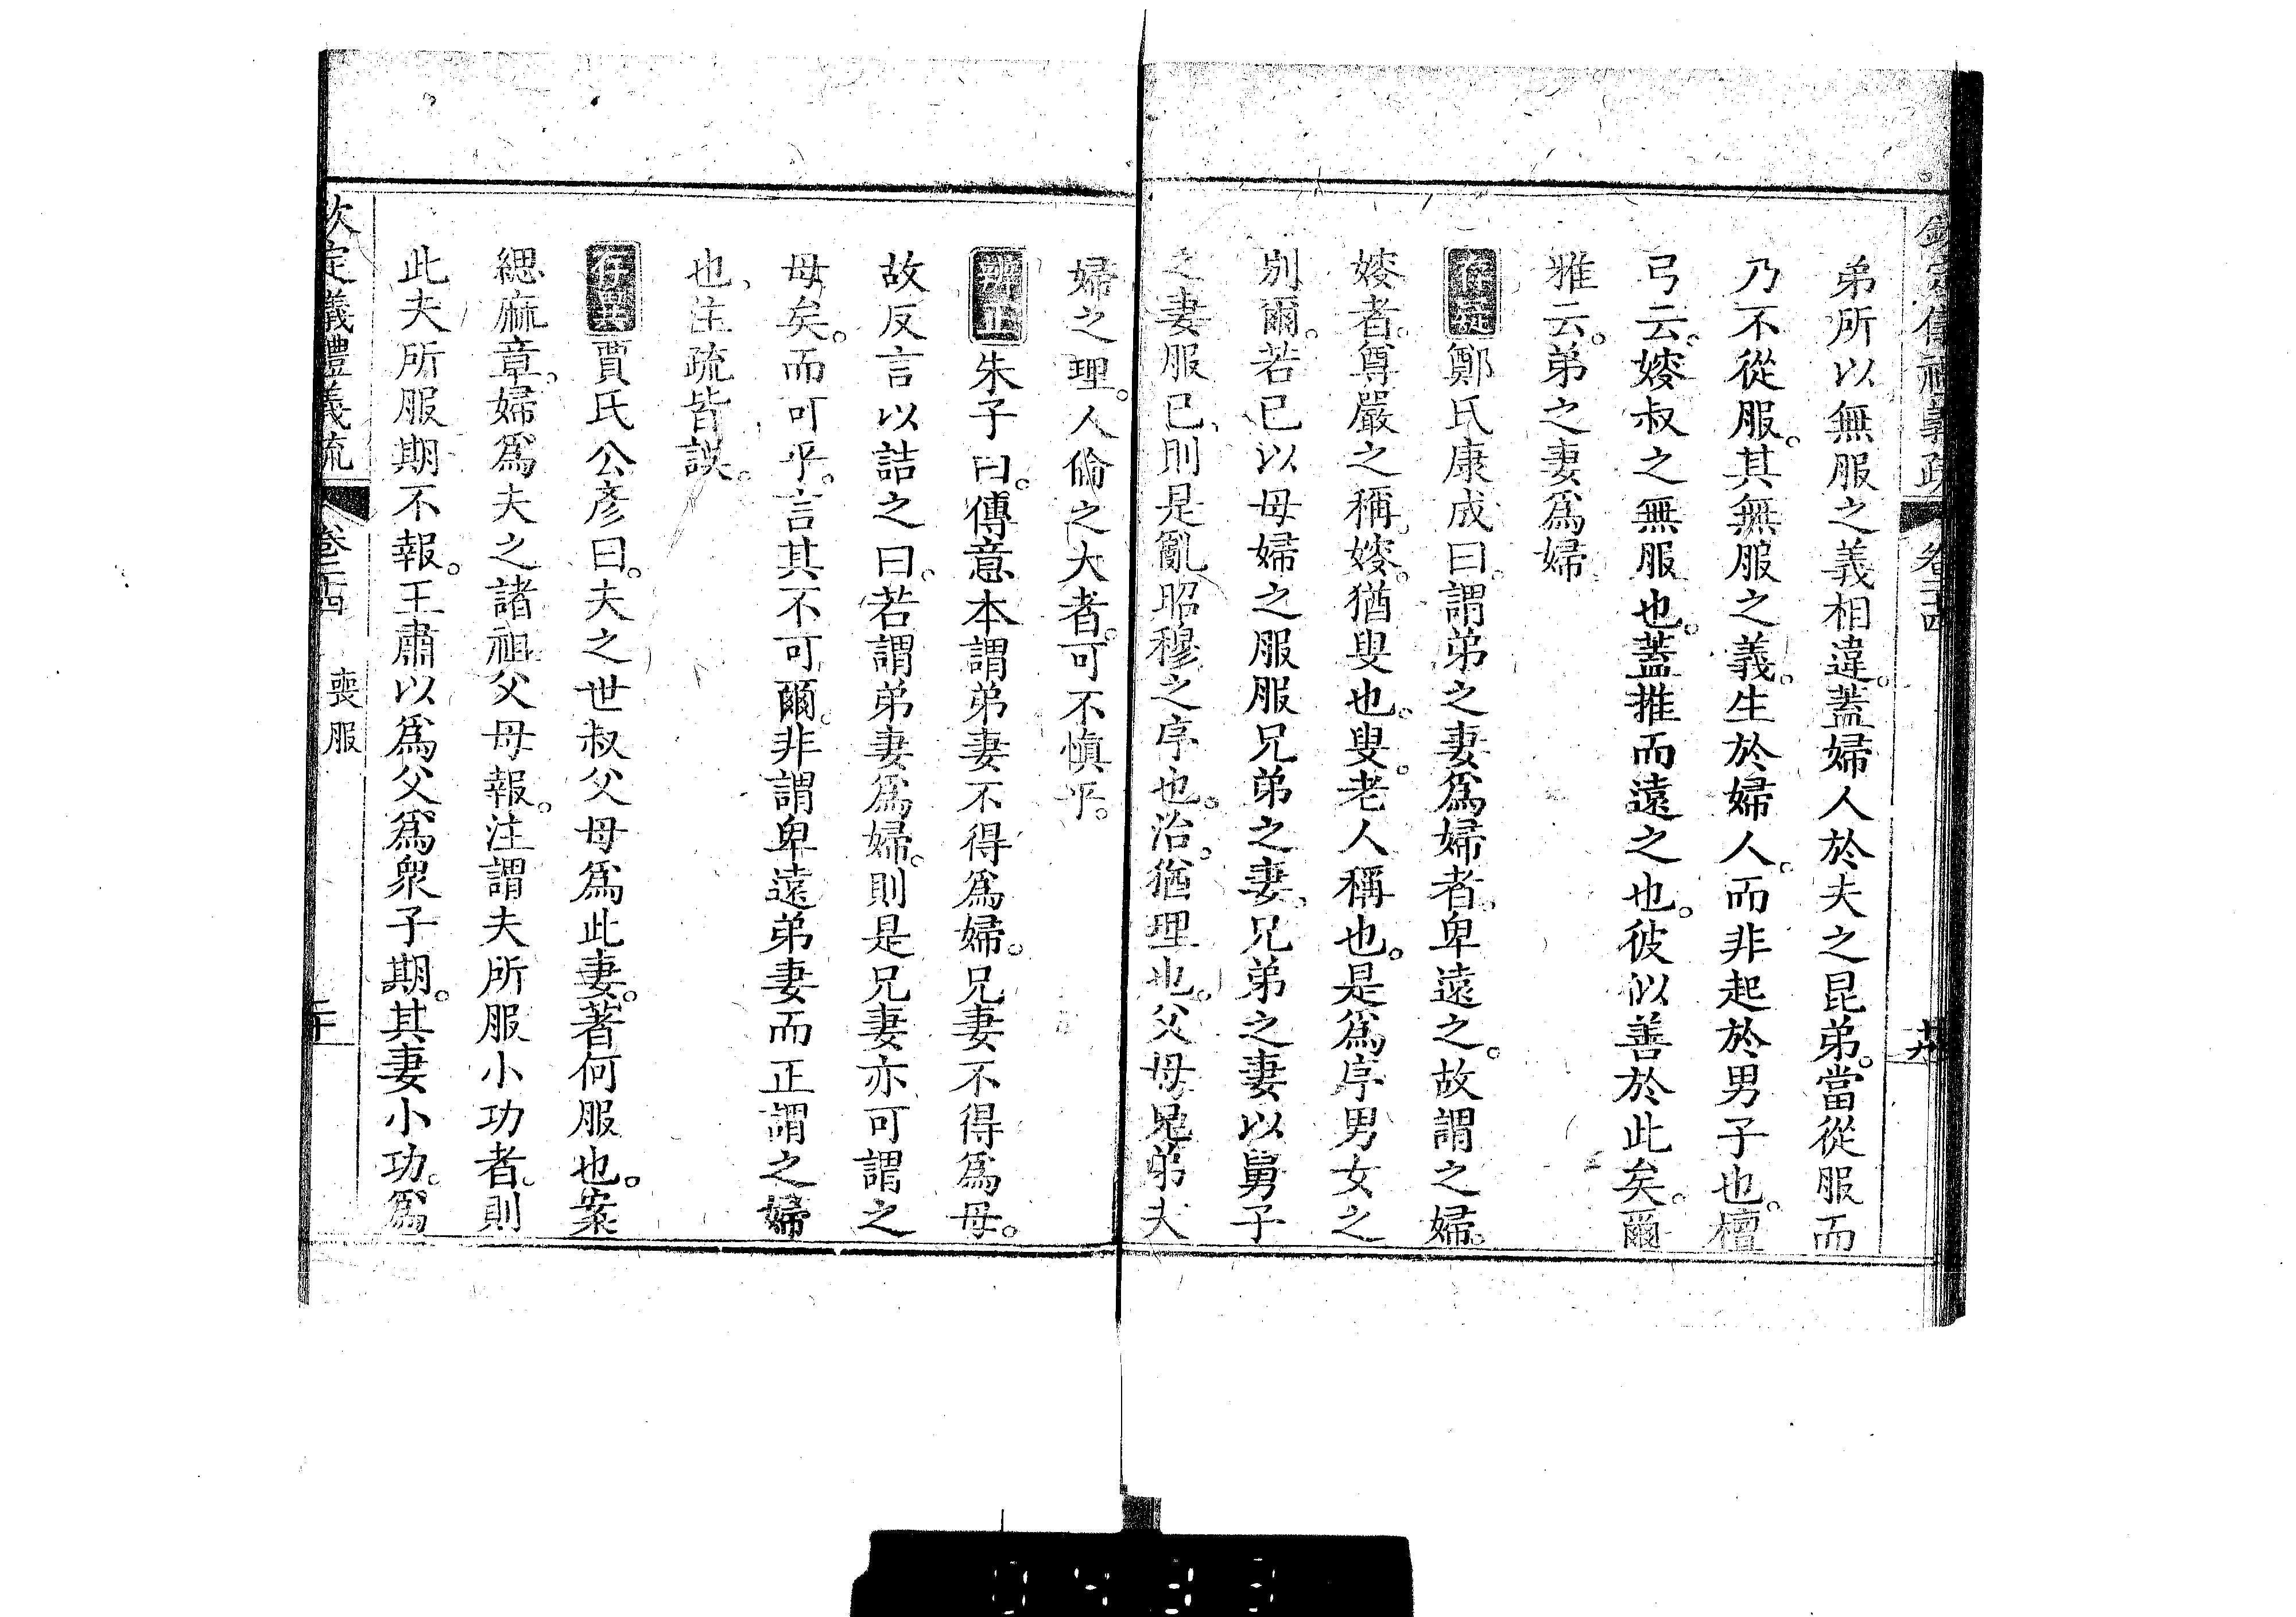 弟所以無服之義相違。蓋婦人於夫之昆弟。當從服而
乃不從服。其無服之義。生於婦人。而非起於男子也。檀
弓云。嫂叔之無服也。蓋推而遠之也。彼似善於此矣。爾
雅云。弟之妻爲婦
存疑鄭氏康成曰。謂弟之妻爲婦者。卑遠之。故謂之婦。
嫂者。尊嚴之稱。嫂。猶叟也。叟。老人稱也。是爲序男女之
別爾。若己以母婦之服服兄弟之妻。兄弟之妻以舅子
之妻服己。則是亂昭穆之序也。治。猶理也。父母兄弟夫
婦之理。人倫之大者。可不慎乎。
辨正朱子曰。傳意本謂弟妻不得爲婦。兄妻不得爲母。
故反言以詰之曰。若謂弟妻爲婦。則是兄妻亦可謂之
母矣。而可乎。言其不可爾。非謂卑遠弟妻而正謂之婦
也。注疏皆誤。
存異賈氏公彥曰。夫之世叔父母爲此妻。著何服也。案
緦麻章。婦爲夫之諸祖父母報。注謂夫所服小功者。則
此夫所服期不報。王肅以爲父爲衆子期。其妻小功。爲
欽定儀禮義疏 卷二十四 喪服